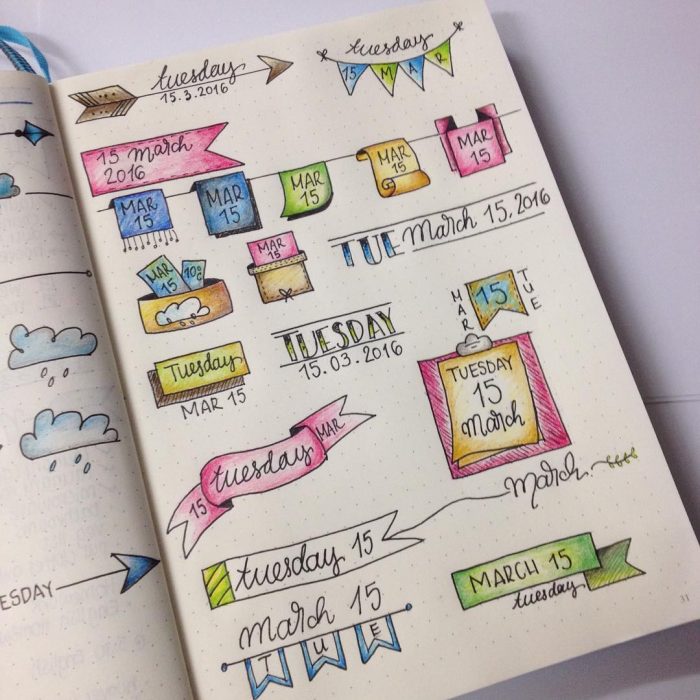 tuesday
15.3.2016
tuesday
15 MAR
15 march
2016
MAR
15
MAR
15
MAR
15
MAR
15
MAR
15
TUE March 15, 2016
MAR
15
10°C
MAR
15
MAR
15
TUE
TUESDAY
15.03.2016
Tuesday
MAR 15
TUESDAY
15
march
15 tuesday MAR
march
tuesday 15
MARCH 15
tuesday
march 15
TUE
ESDAY
31